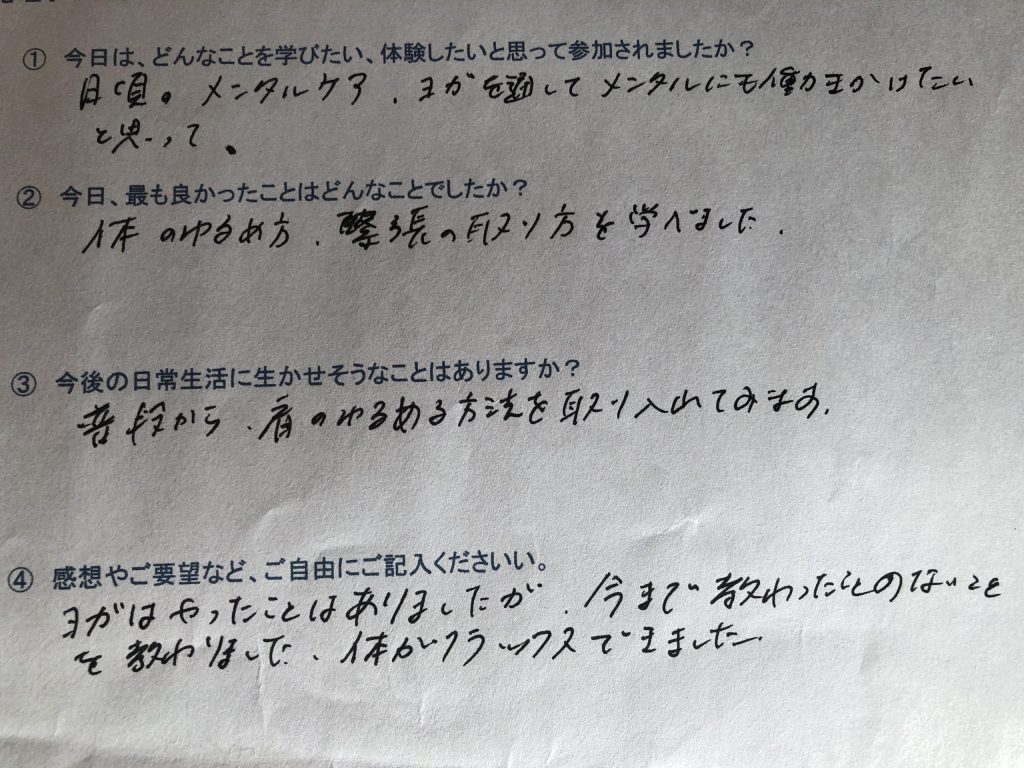 ① 今日は、どんなことを学びたい、体験したいと思って参加されましたか？
日頃。メンタルケア、ヨガを通してメンタルにも働きかけたい
と思って。
② 今日、最も良かったことはどんなことでしたか？
体のゆるめ方、緊張の取り方を学べました。
③ 今後の日常生活に生かせそうなことはありますか？
普段から、肩のゆるめる方法を取り入れてみます。
④ 感想やご要望など、ご自由にご記入くださいい。
ヨガはやったことはありましたが、今まで教わったことのないこと
を教わりました、体がリラックスできました